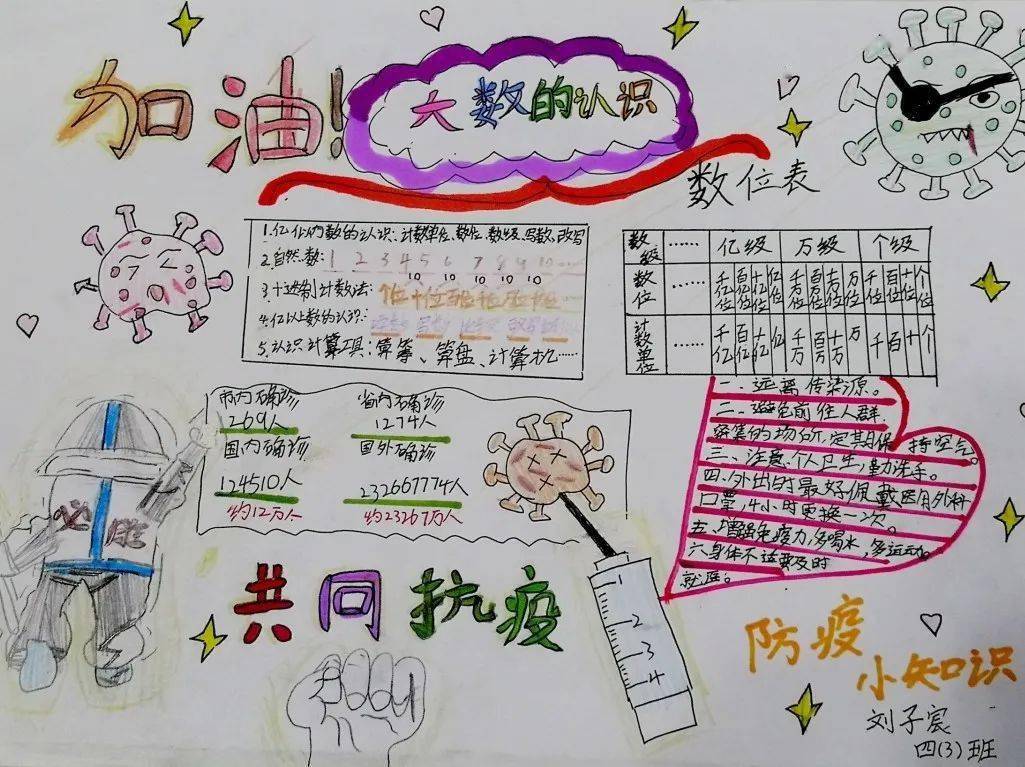 加油!
大数的认识
数位表
1.亿以内数的认识:计数单位、数位、数级、写数、改写
2.自然数:1 2 3 4 5 6 7 8 9 10……
10 10 10 10 10
3.十进制计数法:个位十位百位
4.亿以上数的认识:
5.认识计算工具:算筹、算盘、计算机……
数级 …… 亿级 万级 个级
数位 …… 千亿位 百亿位 十亿位 亿位 千万位 百万位 十万位 万位 千位 百位 十位 个位
计数单位 …… 千亿 百亿 十亿 亿 千万 百万 十万 万 千 百 十 个
市内确诊 省内确诊
269人 1274人
国内确诊 国外确诊
124510人 232667774人
约12万人 约23267万人
一、远离传染源。
二、避免前往人群
密集的场所,定期保持空气。
三、注意个人卫生,勤洗手。
四、外出时最好佩戴医用外科
口罩,4小时更换一次。
五、增强免疫力,多喝水,多运动。
六、身体不适要及时
就医。
必胜
共同抗疫
1
2
3
4
防疫
小知识
刘子宸
四(3)班